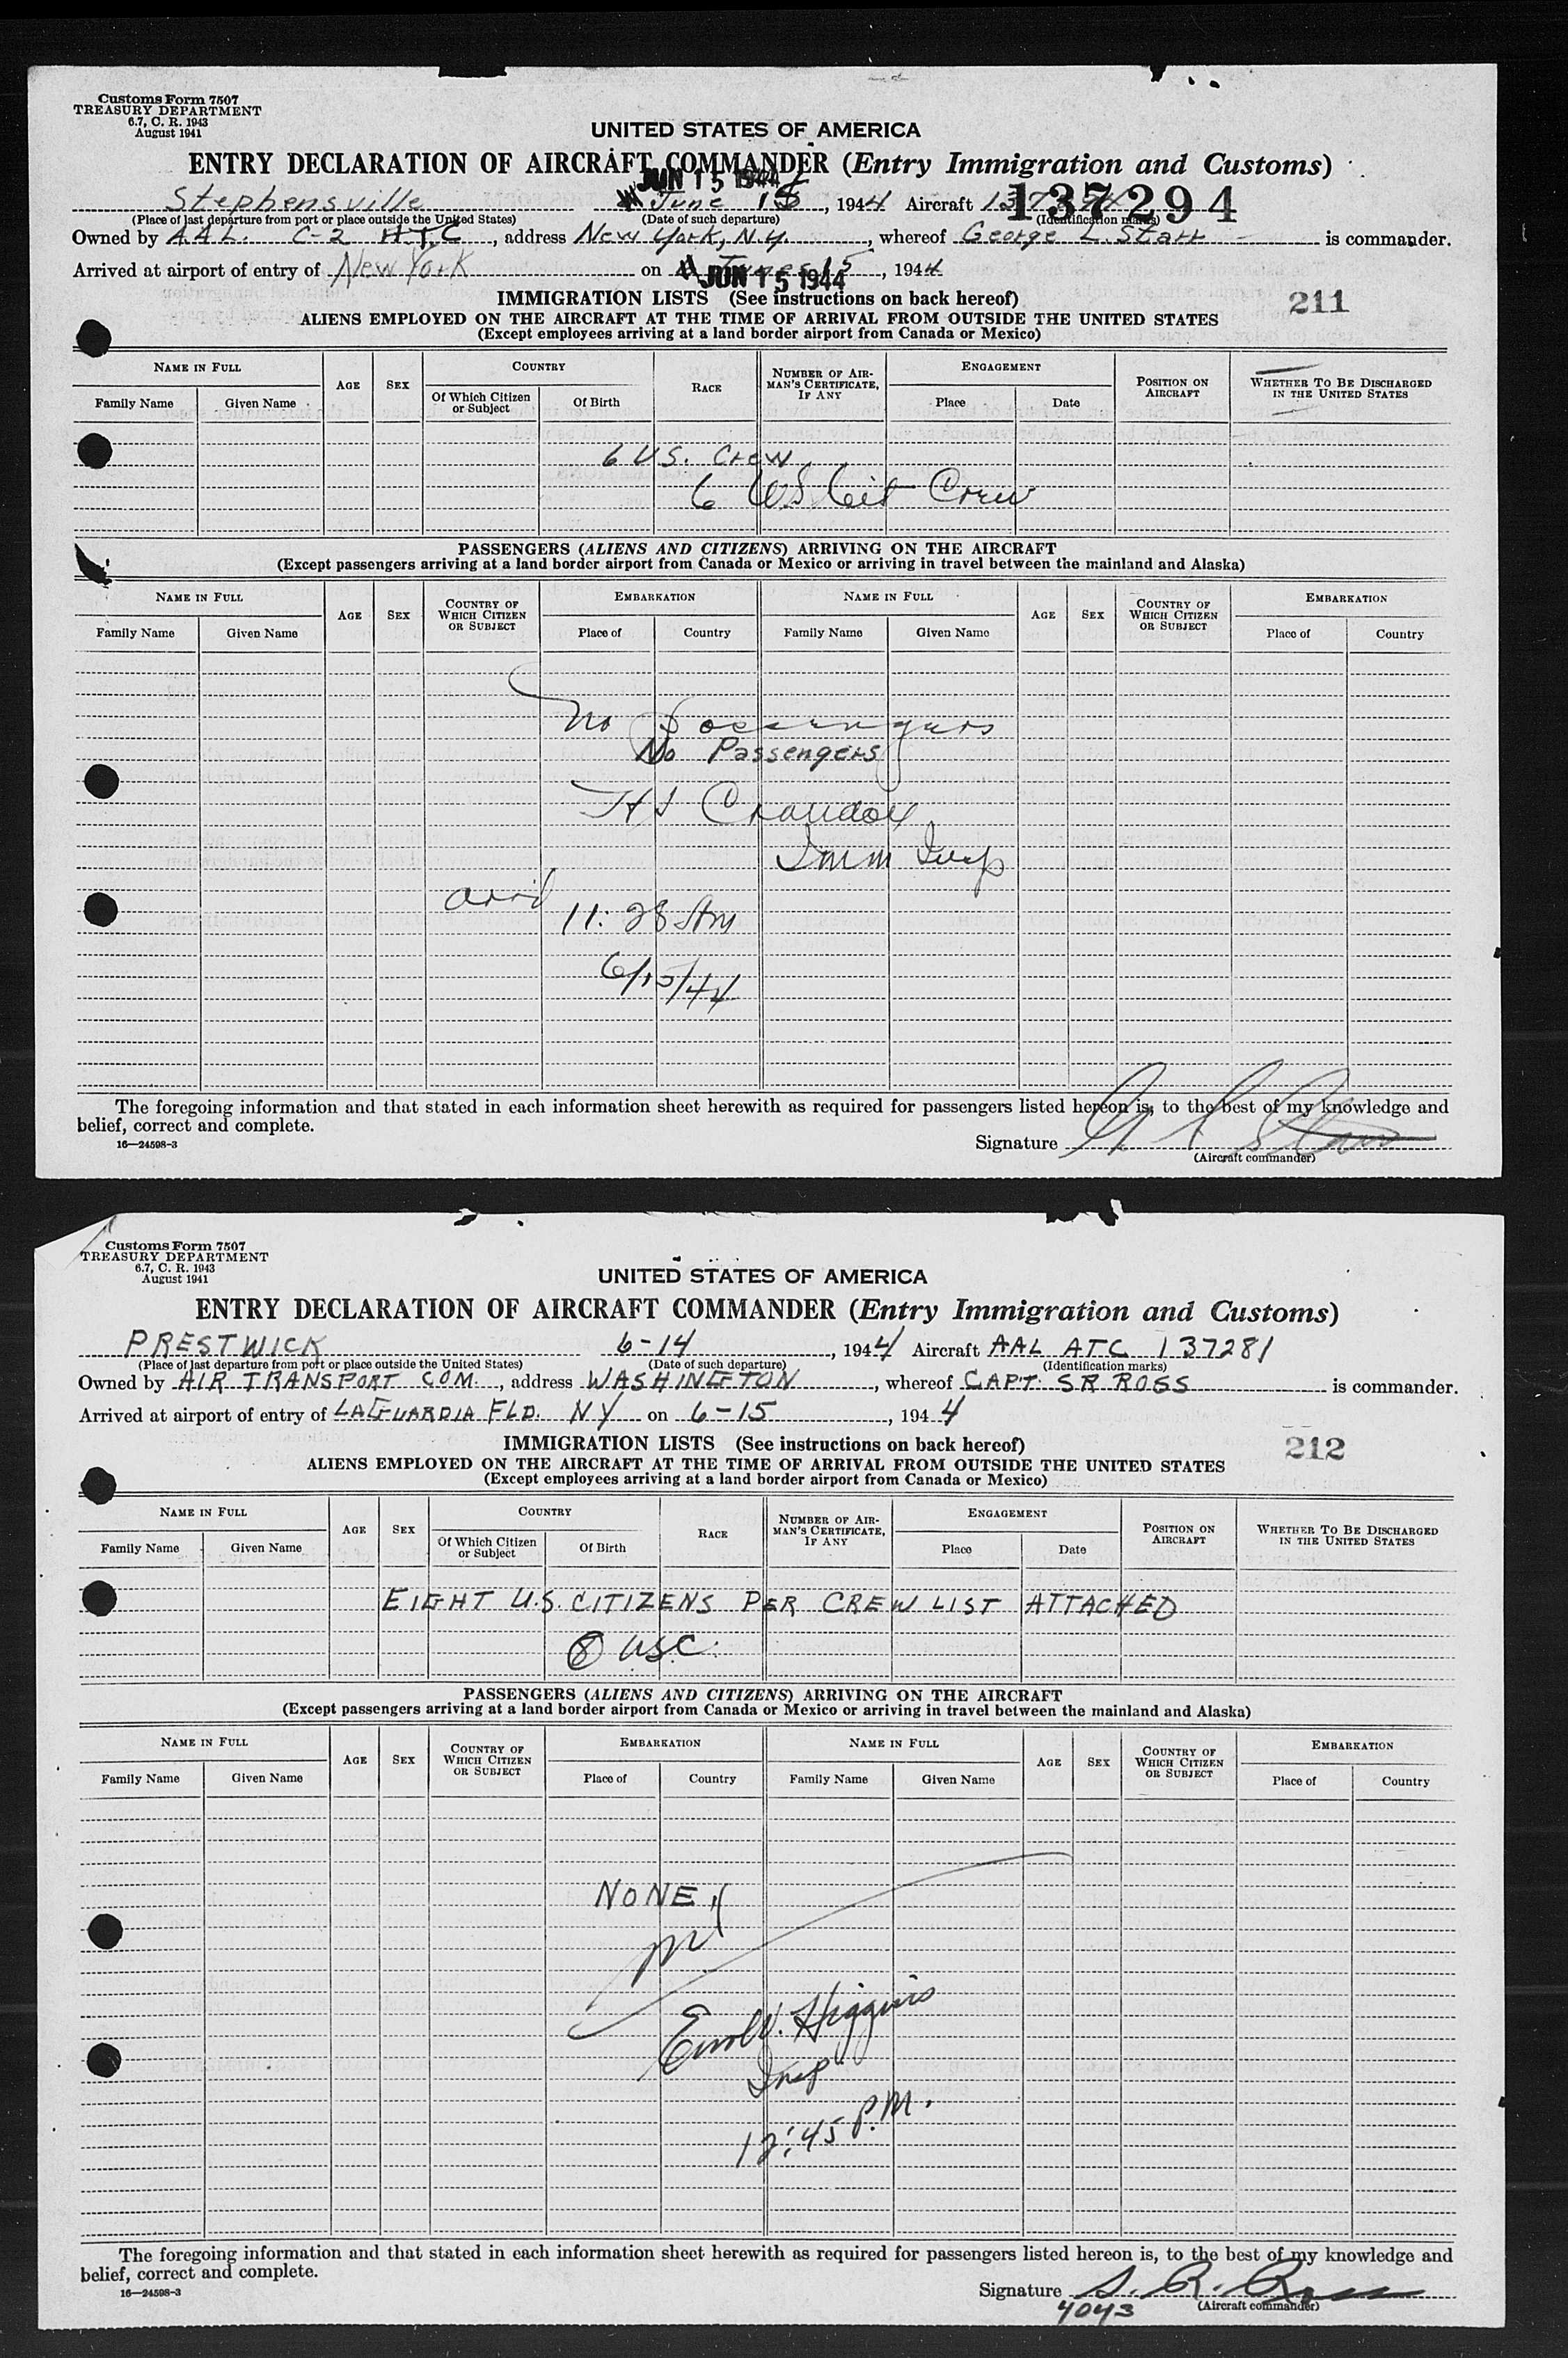 Customs Form 7507
TREASURY DEPARTMENT
6.7, C. R. 1943
August 1941
UNITED STATES OF AMERICA
ENTRY DECLARATION OF AIRCRAFT COMMANDER (Entry Immigration and Customs)
JUN 15 1944
Stephensville June 15, 1944 Aircraft 137294
(Place of last departure from port or place outside the United States) (Date of such departure) (Identification marks)
Owned by A.A.L. C-2, address New York, N.Y., whereof George L. Starr is commander.
Arrived at airport of entry of New York on June 15, 1944
JUN 15 1944
IMMIGRATION LISTS (See instructions on back hereof)
211
ALIENS EMPLOYED ON THE AIRCRAFT AT THE TIME OF ARRIVAL FROM OUTSIDE THE UNITED STATES
(Except employees arriving at a land border airport from Canada or Mexico)
NAME IN FULL AGE SEX COUNTRY RACE NUMBER OF AIRMAN'S CERTIFICATE, IF ANY ENGAGEMENT POSITION ON AIRCRAFT WHETHER TO BE DISCHARGED IN THE UNITED STATES
Family Name Given Name Of Which Citizen or Subject Of Birth Place Date
6 U.S. Crew
6 US Cit Crew
PASSENGERS (ALIENS AND CITIZENS) ARRIVING ON THE AIRCRAFT
(Except passengers arriving at a land border airport from Canada or Mexico or arriving in travel between the mainland and Alaska)
NAME IN FULL AGE SEX COUNTRY OF WHICH CITIZEN OR SUBJECT EMBARKATION NAME IN FULL AGE SEX COUNTRY OF WHICH CITIZEN OR SUBJECT EMBARKATION
Family Name Given Name Place of Country Family Name Given Name Place of Country
No Passengers
No Passengers
Imm Insp
arrd
11:28 Am
6/15/44
The foregoing information and that stated in each information sheet herewith as required for passengers listed hereon is, to the best of my knowledge and
belief, correct and complete.
16—24598-3
Signature G L Starr
(Aircraft commander)
Customs Form 7507
TREASURY DEPARTMENT
6.7, C. R. 1943
August 1941
UNITED STATES OF AMERICA
ENTRY DECLARATION OF AIRCRAFT COMMANDER (Entry Immigration and Customs)
PRESTWICK 6-14, 1944 Aircraft AAL ATC 137281
(Place of last departure from port or place outside the United States) (Date of such departure) (Identification marks)
Owned by AIR TRANSPORT COM., address WASHINGTON, whereof CAPT. SR ROSS is commander.
Arrived at airport of entry of LAGUARDIA FLD. NY on 6-15, 1944
IMMIGRATION LISTS (See instructions on back hereof)
212
ALIENS EMPLOYED ON THE AIRCRAFT AT THE TIME OF ARRIVAL FROM OUTSIDE THE UNITED STATES
(Except employees arriving at a land border airport from Canada or Mexico)
NAME IN FULL AGE SEX COUNTRY RACE NUMBER OF AIRMAN'S CERTIFICATE, IF ANY ENGAGEMENT POSITION ON AIRCRAFT WHETHER TO BE DISCHARGED IN THE UNITED STATES
Family Name Given Name Of Which Citizen or Subject Of Birth Place Date
EIGHT U.S. CITIZENS PER CREW LIST ATTACHED
8 USC.
PASSENGERS (ALIENS AND CITIZENS) ARRIVING ON THE AIRCRAFT
(Except passengers arriving at a land border airport from Canada or Mexico or arriving in travel between the mainland and Alaska)
NAME IN FULL AGE SEX COUNTRY OF WHICH CITIZEN OR SUBJECT EMBARKATION NAME IN FULL AGE SEX COUNTRY OF WHICH CITIZEN OR SUBJECT EMBARKATION
Family Name Given Name Place of Country Family Name Given Name Place of Country
NONE
Higgins
Insp
12:45 P.M.
The foregoing information and that stated in each information sheet herewith as required for passengers listed hereon is, to the best of my knowledge and
belief, correct and complete.
16—24598-3
Signature S. R. Ross
(Aircraft commander)
4043